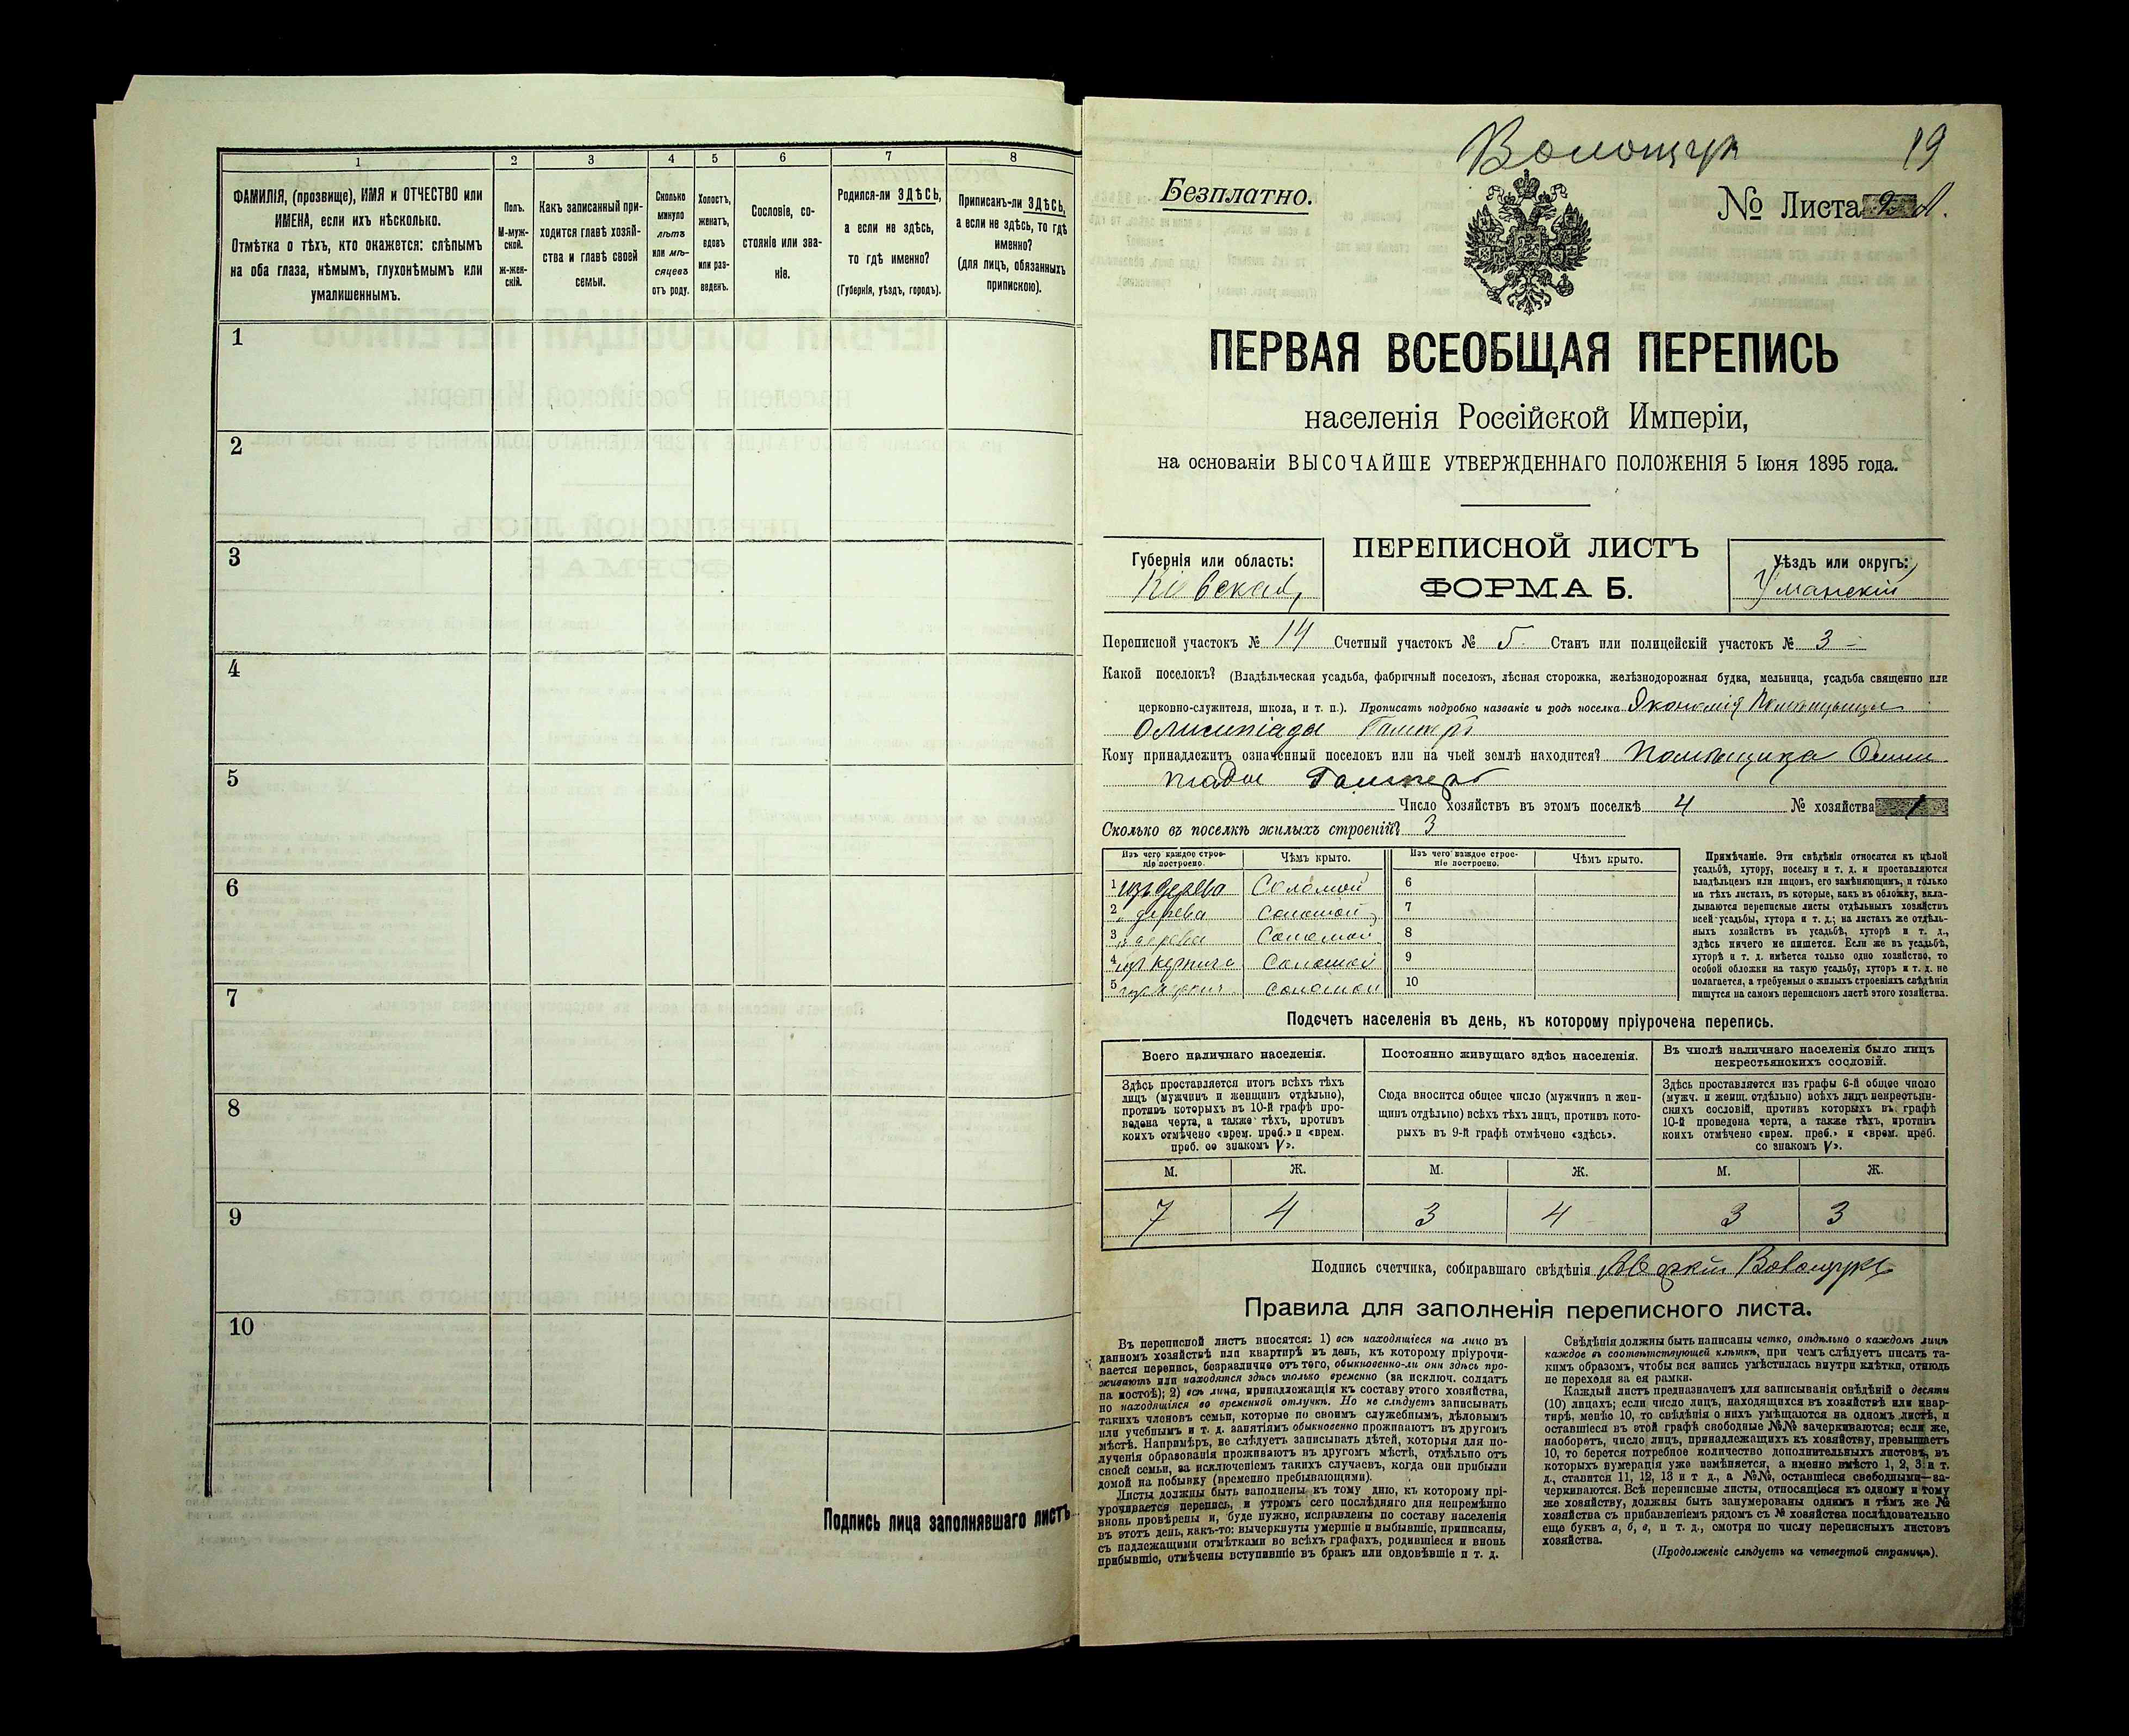 1
2
3
4
5
6
7
8
ФАМИЛІЯ, (прозвище), ИМЯ и ОТЧЕСТВО или
ИМЕНА, если ихъ нѣсколько.
Отмѣтка о тѣхъ, кто окажется: слѣпымъ
на оба глаза, нѣмымъ, глухонѣмымъ или
умалишеннымъ.
Полъ.
М-муж-
ской.
ж-жен-
скій.
Какъ записанный при-
ходится главѣ хозяй-
ства и главѣ своей
семьи.
Сколько
минуло
лѣтъ
или мѣ-
сяцевъ
отъ роду.
Холостъ,
женатъ,
вдовъ
или раз-
веденъ.
Сословіе, со-
стояніе или зва-
ніе.
Родился-ли ЗДѢСЬ,
а если не здѣсь,
то гдѣ именно?
(Губернія, уѣздъ, городъ).
Приписанъ-ли ЗДѢСЬ,
а если не здѣсь, то гдѣ
именно?
(для лицъ, обязанныхъ
припискою).
1
2
3
4
5
6
7
8
9
10
Подпись лица заполнявшаго листъ
Волощук
19
Безплатно.
№ Листа 2 А.
ПЕРВАЯ ВСЕОБЩАЯ ПЕРЕПИСЬ
населенія Россійской Имперіи,
на основаніи ВЫСОЧАЙШЕ УТВЕРЖДЕННАГО ПОЛОЖЕНІЯ 5 Іюня 1895 года.
Губернія или область:
Кіевская
ПЕРЕПИСНОЙ ЛИСТЪ
ФОРМА Б.
Уѣздъ или округъ:
Уманскій
Переписной участокъ № 14 Счетный участокъ № 5 Станъ или полицейскій участокъ № 3
Какой поселокъ? (Владѣльческая усадьба, фабричный поселокъ, лѣсная сторожка, желѣзнодорожная будка, мельница, усадьба священно или
церковно-служителя, школа, и т. п.). Прописать подробно названіе и родъ поселка Экономія Помѣщицы
Олимпіады
Кому принадлежитъ означенный поселокъ или на чьей землѣ находится? Помѣщика Олим
піады
Число хозяйствъ въ этомъ поселкѣ 4 № хозяйства 1
Сколько въ поселкѣ жилыхъ строеній? 3
Изъ чего каждое строе-
ніе построено.
Чѣмъ крыто.
Изъ чего каждое строе-
ніе построено.
Чѣмъ крыто.
1 изъ дерева Соломой 6
2 „ дерева Соломой 7
3 „ дерева Соломой 8
4 изъ кирпича Соломой 9
5 изъ кирпич Соломой 10
Примѣчаніе. Эти свѣдѣнія относятся къ цѣлой
усадьбѣ, хутору, поселку и т. д. и проставляются
владѣльцемъ или лицомъ, его замѣняющимъ, и только
на тѣхъ листахъ, въ которые, какъ въ обложку, вкла-
дываются переписные листы отдѣльныхъ хозяйствъ
всей усадьбы, хутора и т. д.; на листахъ же отдѣль-
ныхъ хозяйствъ въ усадьбѣ, хуторѣ и т. д.,
здѣсь ничего не пишется. Если же въ усадьбѣ,
хуторѣ и т. д. имѣется только одно хозяйство, то
особой обложки на такую усадьбу, хуторъ и т. д. не
полагается, а требуемыя о жилыхъ строеніяхъ свѣдѣнія
пишутся на самомъ переписномъ листѣ этого хозяйства.
Подсчетъ населенія въ день, къ которому пріурочена перепись.
Всего наличнаго населенія.
Постоянно живущаго здѣсь населенія.
Въ числѣ наличнаго населенія было лицъ
некрестьянскихъ сословій.
Здѣсь проставляется итогъ всѣхъ тѣхъ
лицъ (мужчинъ и женщинъ отдѣльно),
противъ которыхъ въ 10-й графѣ про-
ведена черта, а также тѣхъ, противъ
коихъ отмѣчено «врем. преб.» и «врем.
преб. со знакомъ V».
Сюда вносится общее число (мужчинъ и жен-
щинъ отдѣльно) всѣхъ тѣхъ лицъ, противъ кото-
рыхъ въ 9-й графѣ отмѣчено «здѣсь».
Здѣсь проставляется изъ графы 6-й общее число
(мужч. и женщ. отдѣльно) всѣхъ лицъ некрестьян-
скихъ сословій, противъ которыхъ въ графѣ
10-й проведена черта, а также тѣхъ, противъ
коихъ отмѣчено «врем. преб.» и «врем. преб.
со знакомъ V».
М. Ж. М. Ж. М. Ж.
7 4 3 4 3 3
Подпись счетчика, собиравшаго свѣдѣнія Волощукъ
Правила для заполненія переписного листа.
Въ переписной листъ вносятся: 1) всѣ находящіеся на лицо въ
данномъ хозяйствѣ или квартирѣ въ день, къ которому пріурочи-
вается перепись, безразлично отъ того, обыкновенно-ли они здѣсь про-
живаютъ или находятся здѣсь только временно (за исключ. солдатъ
на постоѣ); 2) всѣ лица, принадлежащія къ составу этого хозяйства,
но находящіяся во временной отлучкѣ. Но не слѣдуетъ записывать
такихъ членовъ семьи, которые по своимъ служебнымъ, дѣловымъ
или учебнымъ и т. д. занятіямъ обыкновенно проживаютъ въ другомъ
мѣстѣ. Напримѣръ, не слѣдуетъ записывать дѣтей, которыя для по-
лученія образованія проживаютъ въ другомъ мѣстѣ, отдѣльно отъ
своей семьи, за исключеніемъ такихъ случаевъ, когда они прибыли
домой на побывку (временно пребывающими).
Листы должны быть заполнены къ тому дню, къ которому прі-
урочивается перепись, и утромъ сего послѣдняго дня непремѣнно
вновь провѣрены и, буде нужно, исправлены по составу населенія
въ этотъ день, какъ-то: вычеркнуты умершіе и выбывшіе, приписаны,
съ надлежащими отмѣтками во всѣхъ графахъ, родившіеся и вновь
прибывшіе, отмѣчены вступившіе въ бракъ или овдовѣвшіе и т. д.
Свѣдѣнія должны быть написаны четко, отдѣльно о каждомъ лицѣ
каждое въ соотвѣтствующей клѣткѣ, при чемъ слѣдуетъ писать та-
кимъ образомъ, чтобы вся запись умѣстилась внутри клѣтки, отнюдь
не переходя за ея рамки.
Каждый листъ предназначенъ для записыванія свѣдѣній о десяти
(10) лицахъ; если число лицъ, находящихся въ хозяйствѣ или квар-
тирѣ, менѣе 10, то свѣдѣнія о нихъ умѣщаются на одномъ листѣ, и
оставшіеся въ этой графѣ свободные №№ зачеркиваются; если же,
наоборотъ, число лицъ, принадлежащихъ къ хозяйству, превышаетъ
10, то берется потребное количество дополнительныхъ листовъ, въ
которыхъ нумерація уже измѣняется, а именно вмѣсто 1, 2, 3 и т.
д., ставится 11, 12, 13 и т д., а №№, оставшіеся свободными—за-
черкиваются. Всѣ переписные листы, относящіеся къ одному и тому
же хозяйству, должны быть занумерованы однимъ и тѣмъ же №
хозяйства съ прибавленіемъ рядомъ съ № хозяйства послѣдовательно
еще буквъ а, б, в, и т. д., смотря по числу переписныхъ листовъ
хозяйства.
(Продолженіе слѣдуетъ на четвертой страницѣ).